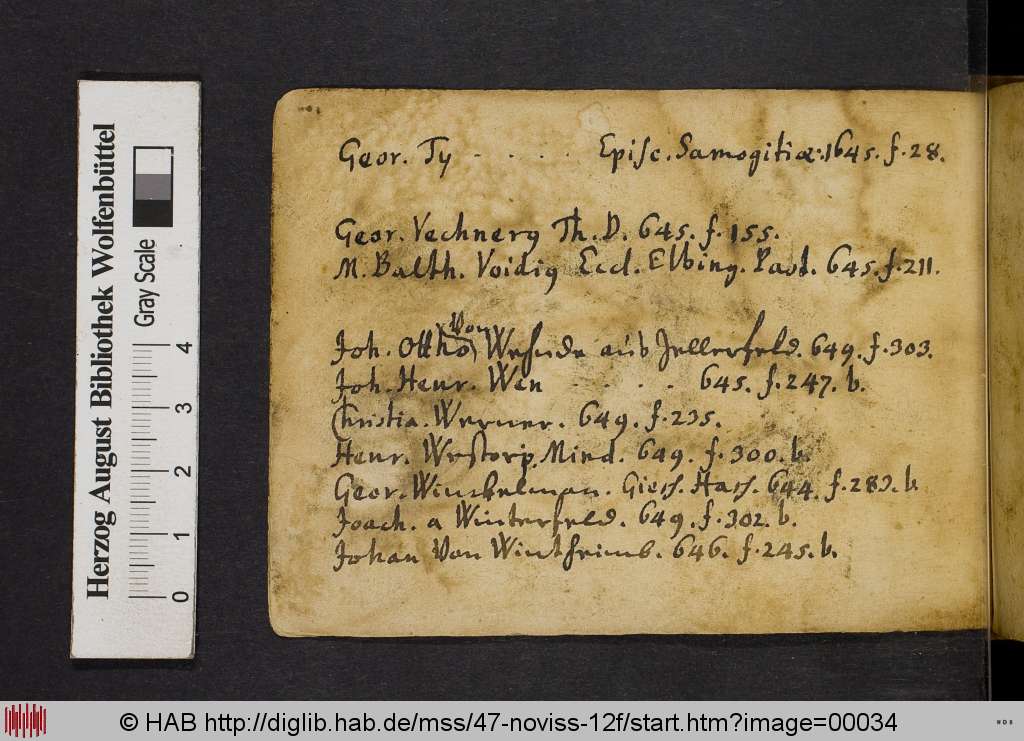 Geor. Ty . . . . . Episc. Samogitiæ. 1645. f. 28.
Geor. Vechnery Th. D. 645. f. 155.
M. Balth. Voidig Eccl. Elbing. Past. 645. f. 211.
Von
Joh. Ottho aus Zellerfeld. 649. f. 303.
Joh. Henr. Wen . . . . 645. f. 247. b.
Christia. Werner. 649. f. 235.
Henr. Westorp. Mind. 649. f. 300. b.
Geor. Winckelman. Giess. Hass. 644. f. 283. b
Joach. a Winterfeld. 649. f. 302. b.
Johan Von 646. f. 245. b.
Herzog August Bibliothek Wolfenbüttel
Gray Scale
0 1 2 3 4
© HAB http://diglib.hab.de/mss/47-noviss-12f/start.htm?image=00034